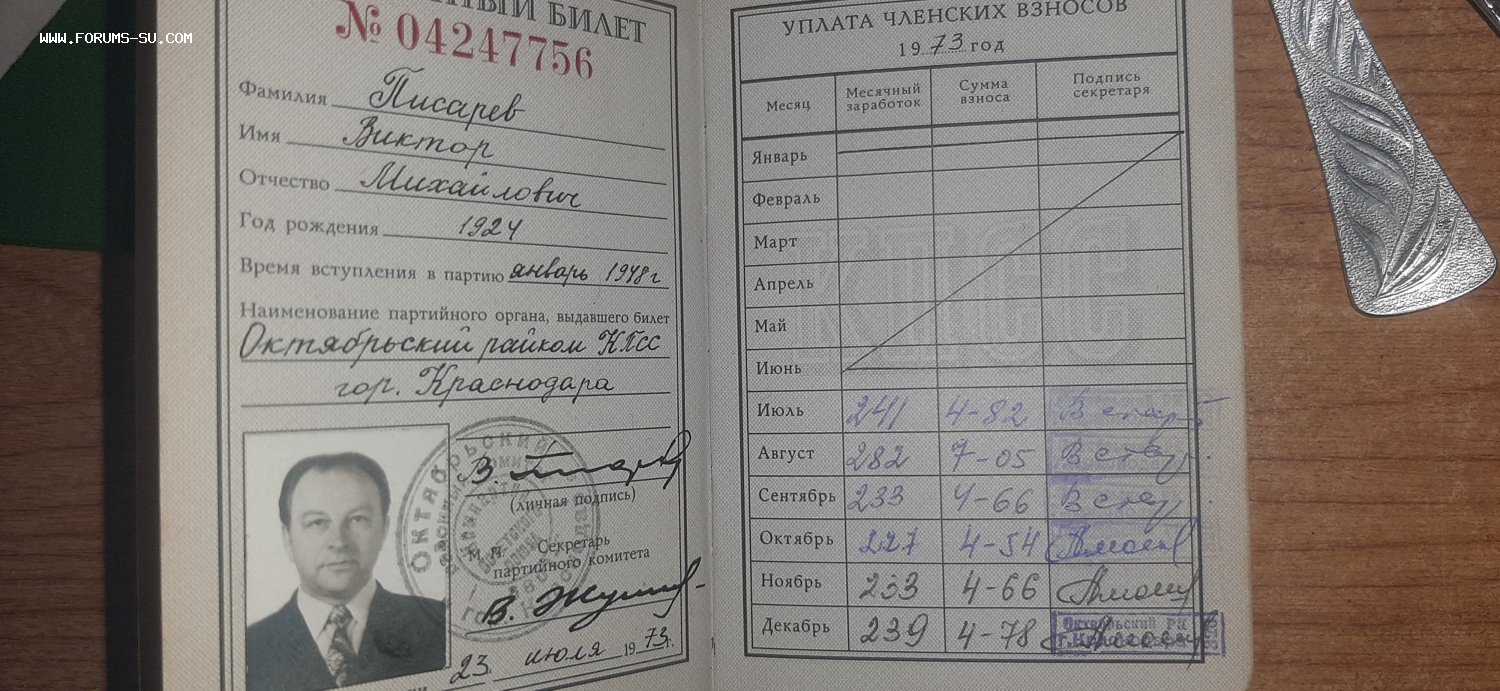 WWW.FORUMS-SU.COM
БИЛЕТ
№ 04247756
Фамилия Писарев
Имя Виктор
Отчество Михайлович
Год рождения 1924
Время вступления в партию январь 1948 г
Наименование партийного органа, выдавшего билет
Октябрьский райком КПСС
гор. Краснодара
(личная подпись)
М. П. Секретарь
партийного комитета
23 июля 1973 г.
УПЛАТА ЧЛЕНСКИХ ВЗНОСОВ
1973 год
Месяц Месячный заработок Сумма взноса Подпись секретаря
Январь
Февраль
Март
Апрель
Май
Июнь
Июль 241 4-82
Август 282 7-05
Сентябрь 233 4-66
Октябрь 227 4-54
Ноябрь 233 4-66
Декабрь 239 4-78
Октябрьский РК